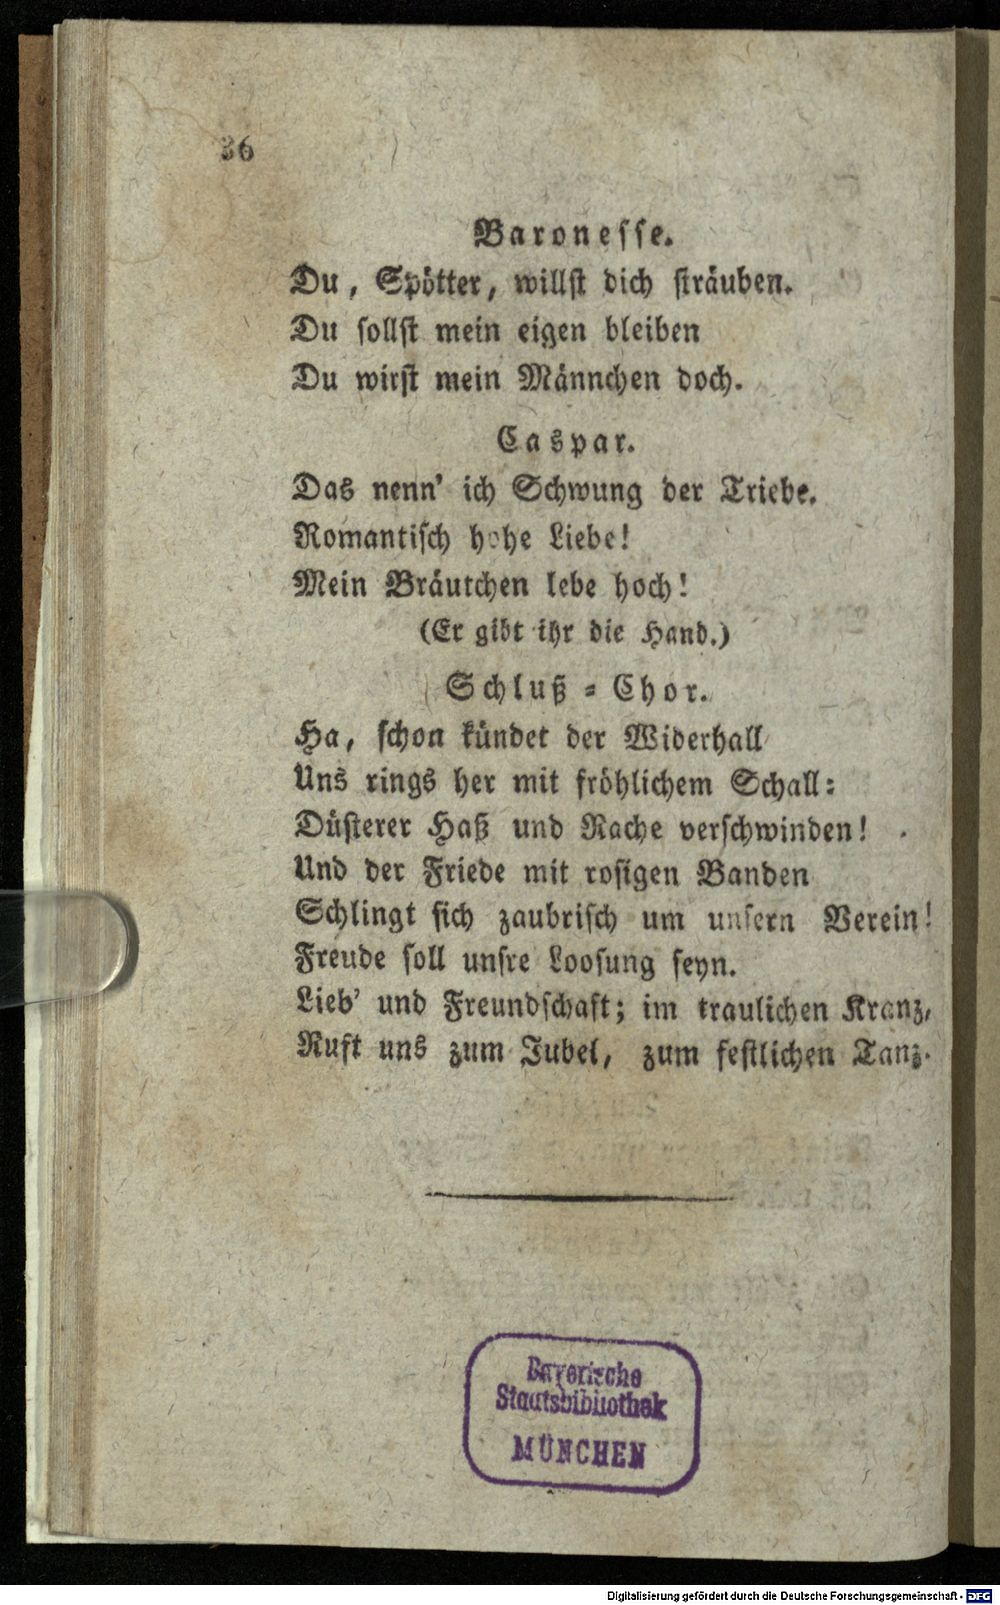 36
Baronesse.
Du, Spötter, willst dich sträuben.
Du sollst mein eigen bleiben
Du wirst mein Männchen doch.
Caspar.
Das nenn' ich Schwung der Triebe.
Romantisch hohe Liebe!
Mein Bräutchen lebe hoch!
(Er gibt ihr die Hand.)
Schluß = Chor.
Ha, schon kündet der Widerhall
Uns rings her mit fröhlichem Schall:
Düsterer Haß und Rache verschwinden!
Und der Friede mit rosigen Banden
Schlingt sich zaubrisch um unsern Verein!
Freude soll unsre Loosung seyn.
Lieb' und Freundschaft; im traulichen Kranz,
Ruft uns zum Jubel, zum festlichen Tanz.
Bayerische
Staatsbibliothek
MÜNCHEN
Digitalisierung gefördert durch die Deutsche Forschungsgemeinschaft - DFG